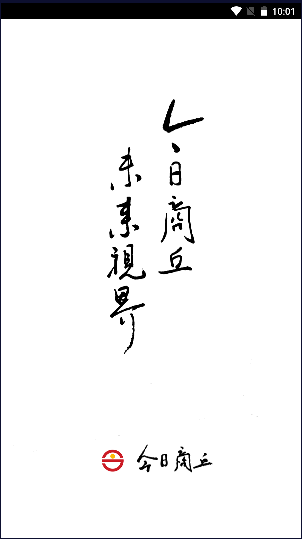 10:01
今日商丘
未来視界
今日商丘